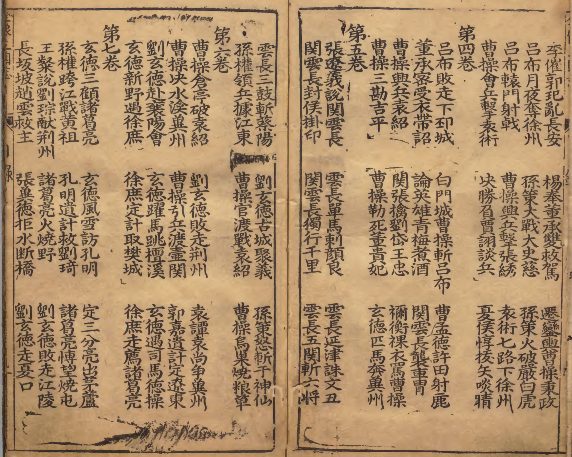 李傕郭汜亂長安 楊奉董承救駕 遷鑾輿曹操秉政
呂布月夜奪徐州 孫策大戰太史慈 孫策火破嚴白虎
呂布轅門射戟 曹操興兵擊張綉 袁術七路下徐州
曹操會兵擊袁術 決勝負賈詡談兵 夏侯惇拔矢啖睛
第四卷
呂布敗走下邳城 白門城曹操斬呂布 曹孟德許田射鹿
董承密受衣帶詔 論英雄青梅煮酒 關雲長襲車冑
曹操興兵袁紹 關張擒劉岱王忠 禰衡裸衣罵曹操
曹操三勘吉平 曹操勒死董貴妃 玄德匹馬奔冀州
第五卷
張遼義說關雲長 雲長單馬刺顏良 雲長延津誅文丑
關雲長封侯掛印 關雲長獨行千里 雲長五關斬六將
雲長三鼓斬蔡陽 劉玄德古城聚義 孫策怒斬于神仙
孫權領兵據江東 曹操官渡戰袁紹 曹操烏巢燒糧草
第六卷
曹操倉亭破袁紹 劉玄德敗走荊州 袁譚袁尚爭冀州
曹操決水渰冀州 曹操引兵渡壺關 郭嘉遺計定遼東
劉玄德赴襄陽會 玄德躍馬跳檀溪 玄德遇司馬德操
玄德新野遇徐庶 徐庶定計取樊城 徐庶走薦諸葛亮
第七卷
玄德三顧諸葛亮 玄德風雪訪孔明 定三分亮出茅廬
孫權跨江戰黃祖 孔明遺計救劉琦 諸葛亮博望燒屯
王粲說劉琮獻荊州 諸葛亮火燒野 劉玄德敗走江陵
長坂坡趙雲救主 張翼德拒水斷橋 劉玄德走夏口